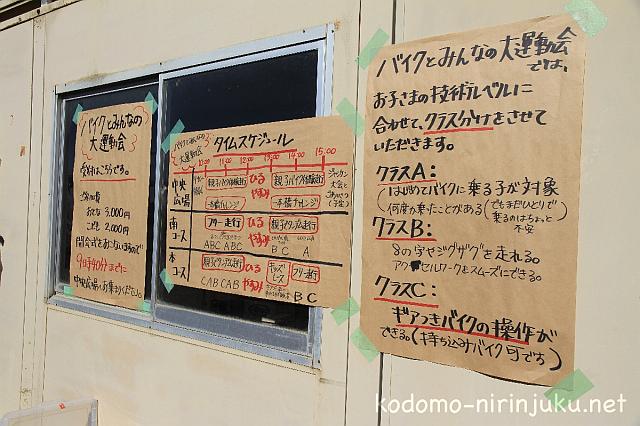 バイクとみんなの
大運動会
受付はこちらです。
参加費
おとな 3,000円
こども 2,000円
開会式をおこないますので
9時40分までに
中央広場へお集まりください。
バイクとみんなの
大運動会
タイムスケジュール
10:00 11:00 12:00 13:00 14:00 15:00
中央
広場
親子バイク体験走行
ひる
やすみ
親子バイク体験走行
一本橋チャレンジ
一本橋チャレンジ
南
コース
フリー走行
ABC ABC
ひる
やすみ
親子タンデム走行
B C A
本
コース
親子タンデム走行
CAB CAB
ひる
やすみ
キッズ
レース
フリー走行
B C
バイクとみんなの大運動会
では、
お子さまの技術レベルに
合わせて、クラス分けをさせて
いただきます。
クラスA:
(はじめてバイクに乗る子が対象
何度か乗ったことがある(でもまだひとりで
乗るのはちょっと
不安
クラスB:
8の字やジグザグを走れる。
アクセルワークもスムーズにできる。
クラスC:
ギアつきバイクの操作が
できる。(持ち込みバイク可です)
kodomo-nirinjuku.net